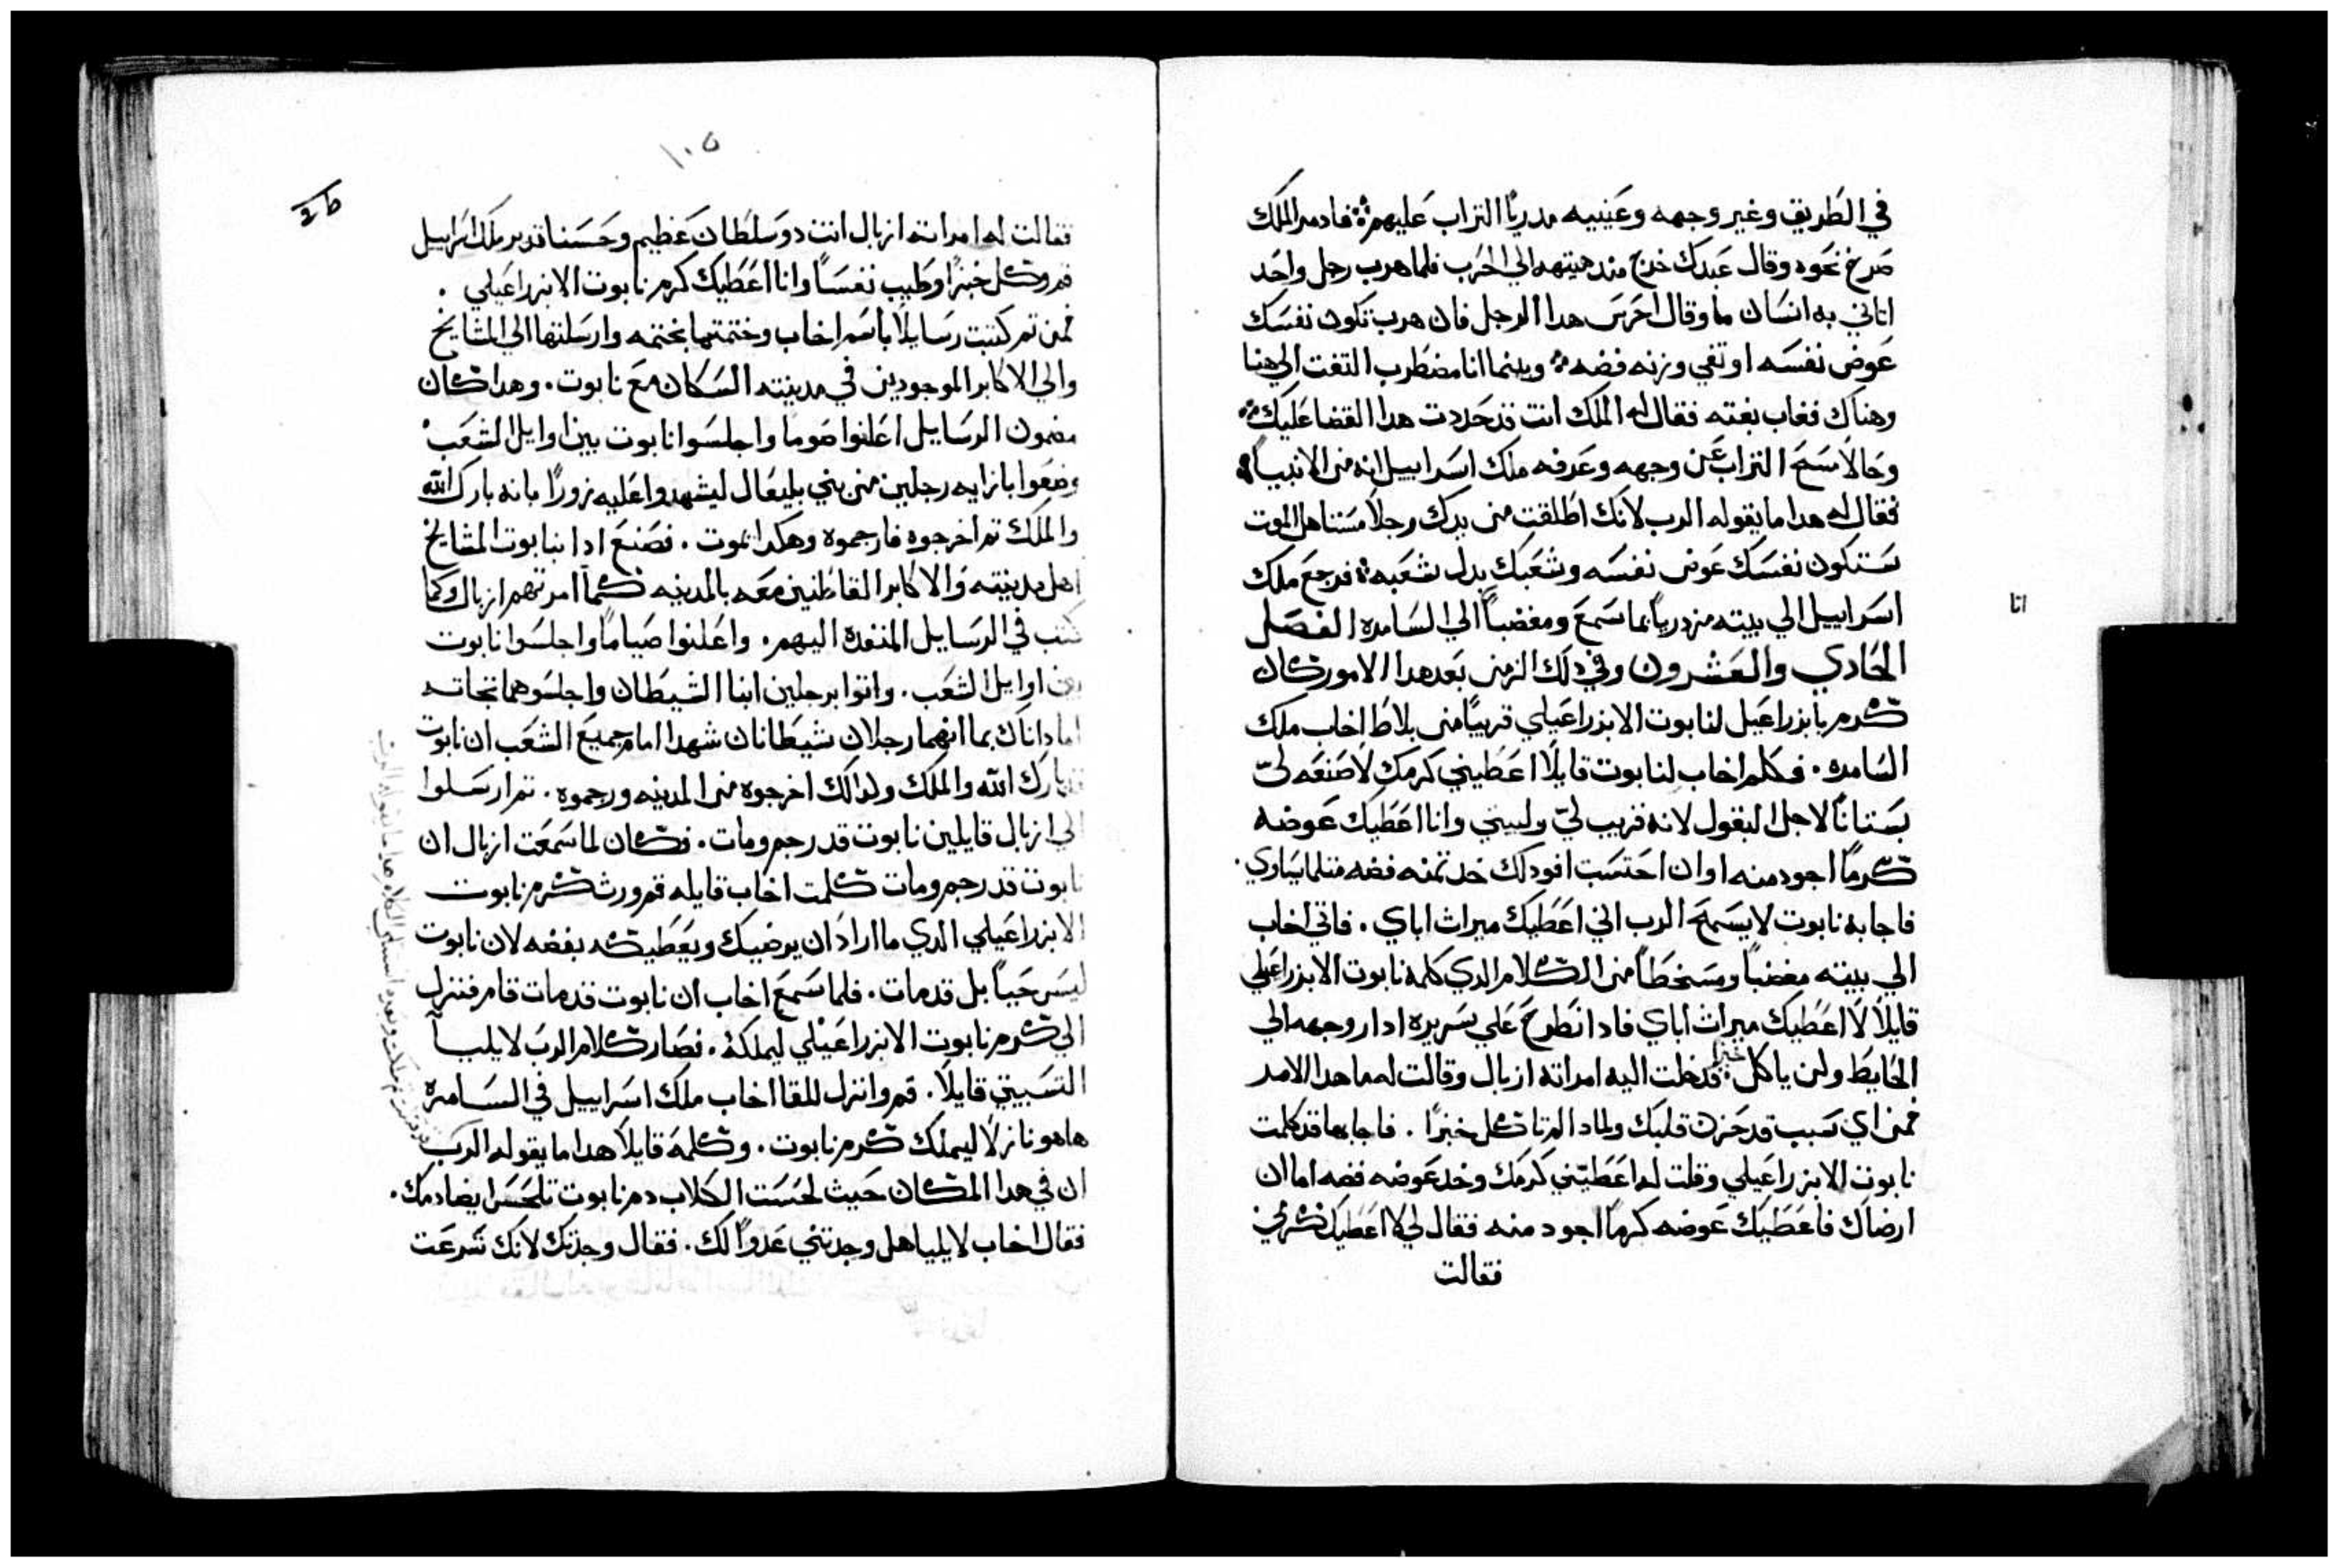 في الطريق وغير وجهه وعينيه مدريًا التراب عليهم فاد مر الملك
صرخ نحوه وقال عبدك خرج منذ هيتهه الي الحرب فلما هرب رجل واحد
اتاني به انسان ما وقال احرس هدا الرجل فان هرب تكون نفسك
عوض نفسه او تفي وزنه فضه وبينما انا مضطرب التفت الي هنا
وهناك فغاب بغته فقال له الملك انت قد حددت هدا القضا عليك
وحالا مسح التراب عن وجهه وعرفه ملك اسراييل انه من الانبيا
فقال له هدا ما يقوله الرب لانك اطلقت من يدك رجلا مستاهل الموت
ستكون نفسك عوض نفسه وشعبك بدل شعبه فرجع ملك
اسراييل الي بيته مزدريا بما سمع ومغضبا الي السامره الفصل
انا
الحادي والعشرون وفي دلك الزمن بعد هدا الامور كان
كرم بايزراعيل لنابوت الايزراعيلي قريبا من بلاط اخاب ملك
السامره . فكلم اخاب لنابوت قايلا اعطيني كرمك لاصنعه ليّ
بستانا لاجل البقول لانه قريب ليّ ولبيتي وانا اعطيك عوضه
كرما اجود منه او ان احتسبت افود لك خد تمنه فضه متلما يساوي .
فاجابه نابوت لا يسمح الرب اني اعطيك ميراث اباي . فاتي اخاب
الي بيته مغضبا ومسخطا من الكلام الدي كلمه نابوت الايزراعيلي
قايلا لا اعطيك ميراث اباي فاد انطرح علي سريره ادار وجهه الي
الحايط ولن ياكل خبزا فدخلت اليه امراته ازبال وقالت له ما هدا الامر
فمن اي سبب قد حزن قلبك ولمادا لم تاكل خبزًا . فاجابها قد كلمت
نابوت الايزراعيلي وقلت له اعطيني كرمك وخد عوضه فضه اما ان
ارضاك فاعطيك عوضه كرما اجود منه فقال لي لا اعطيك كرمي
فقالت
١٠٥
فقالت له امراته ازبال انت دو سلطان عظيم وحسنا تدبر ملك اسراييل
قم وكل خبزًا وطيب نفسًا وانا اعطيك كرم نابوت الايزراعيلي .
فمن تم كتبت رسايلا باسم اخاب وختمتها بختمه وارسلتها الي المشايخ
والي الاكابر الموجودين في مدينته السكان مع نابوت . وهدا كان
مضمون الرسايل اعلنوا صوما واجلسوا نابوت بين اوايل الشعب
وضعوا بازايه رجلين من بني بليعال ليشهدوا عليه زورًا بانه بارك الله
والملك تم اخرجوه فارجموه وهكدا يموت . فصنع ادا بنابوت المشايخ
اهل مدينته والاكابر القاطنين معه بالمدينه كما امرتهم ازبال وكما
كتب في الرسايل المنفده اليهم . واعلنوا صياما واجلسوا نابوت
بين اوايل الشعب . واتوا برجلين ابنا الشيطان واجلسوهما تجاته
اما داناك بما انهما رجلان شيطانان شهدا امام جميع الشعب ان نابوت
بارك الله والملك ولدالك اخرجوه من المدينه ورجموه . تم ارسلوا
الي ازبال قايلين نابوت قد رجم ومات . فكان لما سمعت ازبال ان
نابوت قد رجم ومات كلمت اخاب قايله قم ورث كرم نابوت
الايزراعيلي الدي ما اراد ان يرضيك ويعطيكه بفضه لان نابوت
ليس حيا بل قد مات . فلما سمع اخاب ان نابوت قد مات قام فنزل
الي كرم نابوت الايزراعيلي ليملكه . فصار كلام الرب لايليا
التسبيتي قايلا . قم وانزل للقا اخاب ملك اسراييل في السامره
هاهو نازلا ليملك كرم نابوت . وكلمه قايلا هدا ما يقوله الرب
ان في هدا المكان حيث لحست الكلاب دم نابوت تلحس ايضا دمك .
فقال اخاب لايليا هل وجدتني عدوا لك . فقال وجدتك لانك شرعت